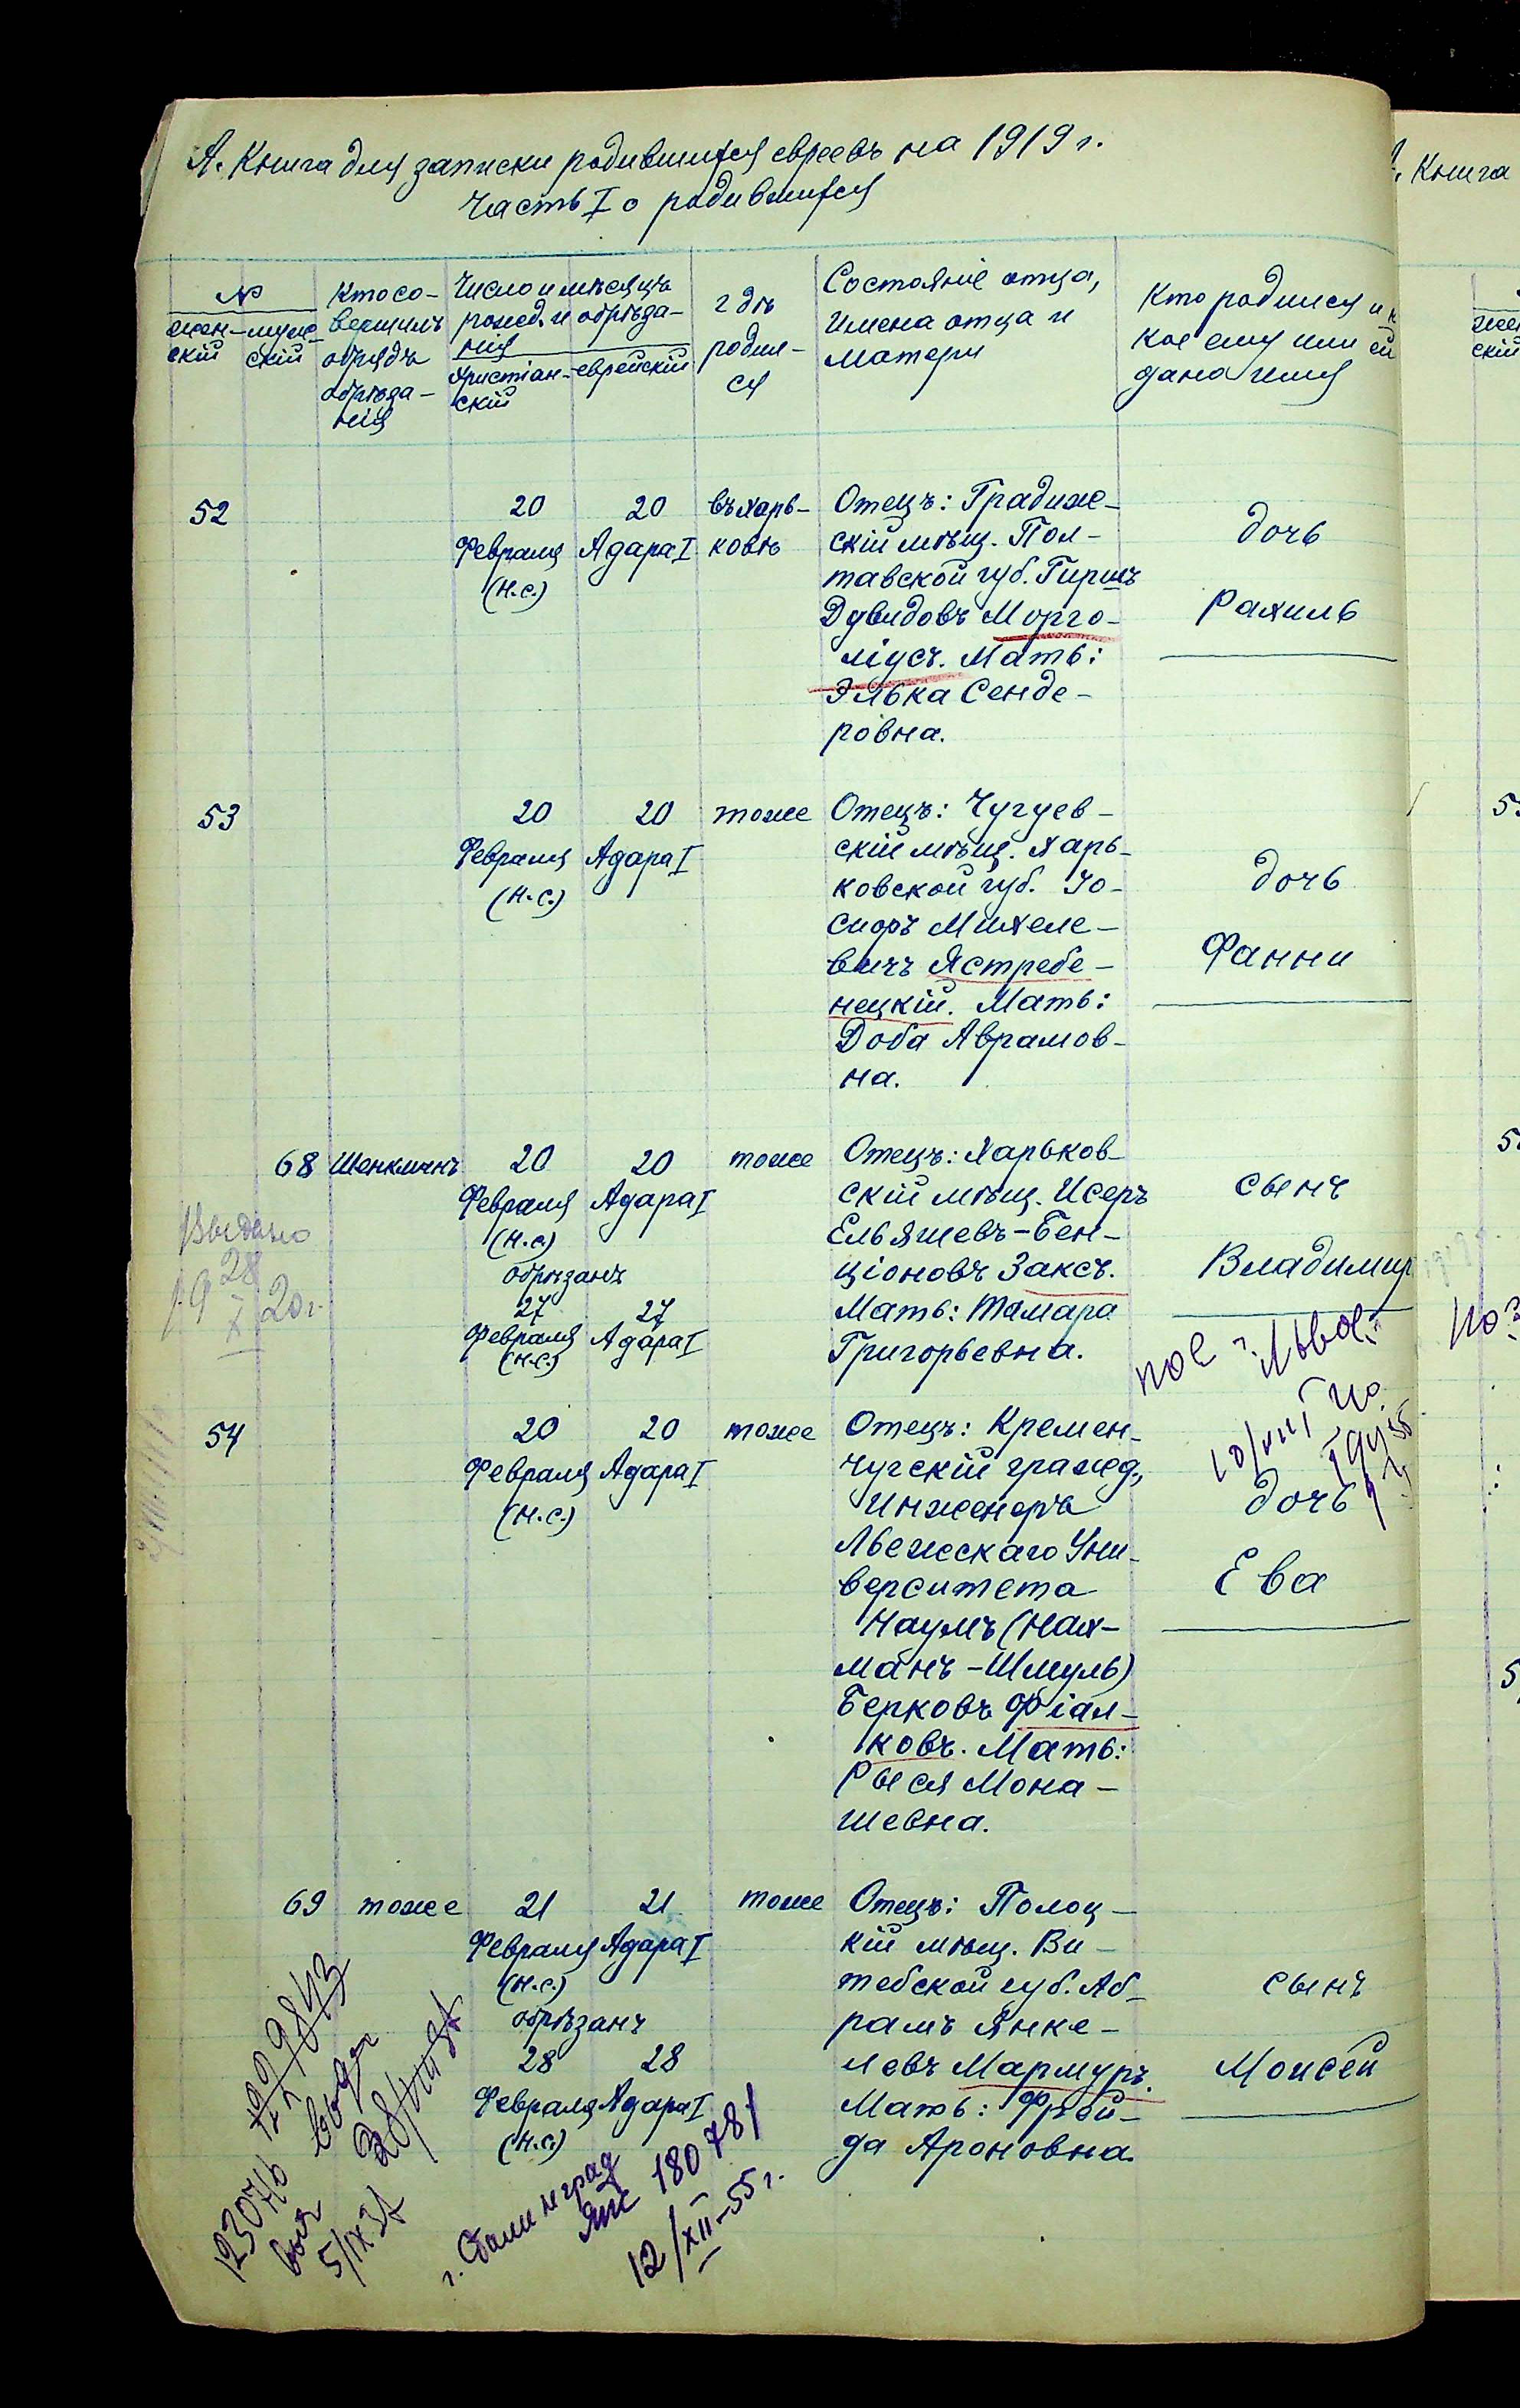 А. Книга для записки родившихся евреевъ на 1919 г.
Часть I о родившихся
№
жен-
скій
муже-
скій
Кто со-
вершилъ
обрядъ
обрѣза-
нія
Число и мѣсяцъ
рожд. и обрѣза-
нія
Христіан-
скій
еврейскій
гдѣ
родил-
ся
Состояніе отца,
имена отца и
матери
Кто родился и
кое ему или ей
дано имя
52
20
Февраля
(н.с.)
20
Адара I
въ Харь-
ковѣ
Отецъ: Градиж-
скій мѣщ. Пол-
тавской губ. Гиршъ
Дувидовъ Марго-
ліусъ. Мать:
Элька Сенде-
ровна.
дочь
Рахиль
53
20
Февраля
(н.с.)
20
Адара I
тоже
Отецъ: Чугуев-
скій мѣщ. Харь-
ковской губ. Іо-
сифъ Михеле-
вичъ Ястребе-
нецкій. Мать:
Доба Аврамов-
на.
дочь
Фанни
68
Шенкманъ
20
Февраля
(н.с.)
обрѣзанъ
27
Февраля
(н.с.)
20
Адара I
27
Адара I
тоже
Отецъ: Харьков-
скій мѣщ. Исеръ
Ельяшевъ-Бен-
ціоновъ Заксъ.
Мать: Тамара
Григорьевна.
сынъ
Владимир
Выдано
28
X 20 г.
54
20
Февраля
(н.с.)
20
Адара I
тоже
Отецъ: Кремен-
чугскій гражд.,
Инженеръ
Льежскаго Уни-
верситета
Наумъ (Нах-
манъ-Шмуль)
Берковъ Фіал-
ковъ. Мать:
Рыся Мона-
шевна.
дочь
Ева
69
тоже
21
Февраля
(н.с.)
обрѣзанъ
28
Февраля
(н.с.)
21
Адара I
28
Адара I
тоже
Отецъ: Полоц-
кій мѣщ. Ви-
тебской губ. Аб-
рамъ Янке-
левъ Мармуръ.
Мать: Фрей-
да Ароновна.
сынъ
Моисей
5/IX 37
г. Сталинград
180781
12/XII-55 г.
Книга